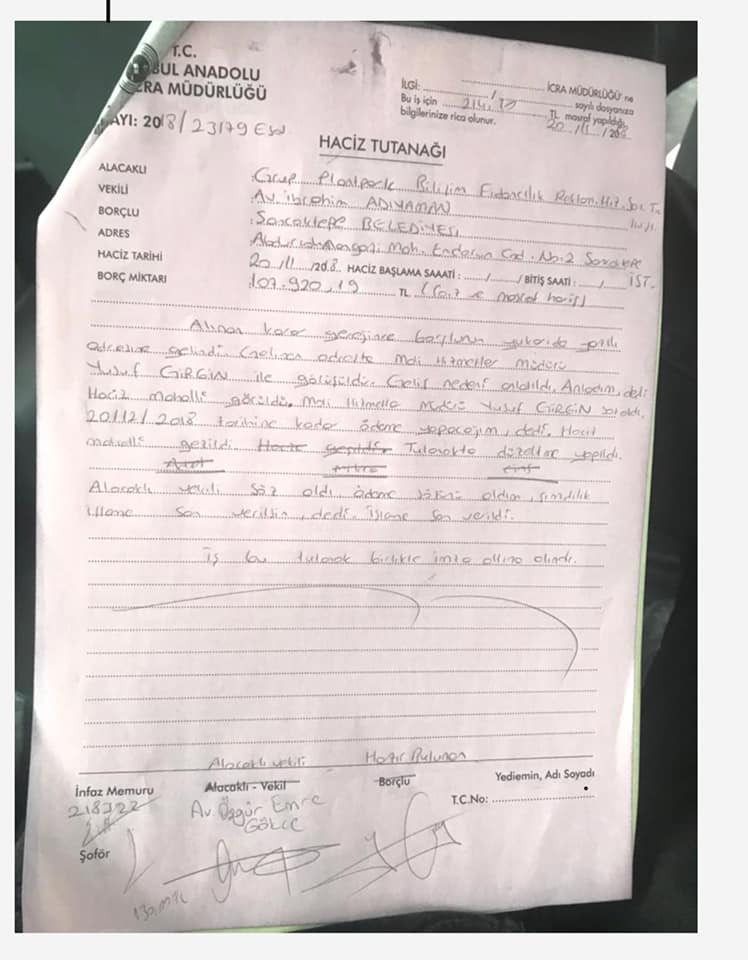 T.C.
BUL ANADOLU
CRA MÜDÜRLÜĞÜ
AYI: 2018/23179 Esas
İLGİ: ........ / ........ İCRA MÜDÜRLÜĞÜ' ne
........ sayılı dosyanıza
Bu iş için 214,70 TL masraf yapıldığı
bilgilerinize rica olunur. 20/11/2018
HACİZ TUTANAĞI
ALACAKLI Grup Plantpark Bilişim Fidancılık Reklam. Hiz. San. Tic
VEKİLİ Av. İbrahim ADIYAMAN
BORÇLU Sancaktepe BELEDİYESİ
ADRES Abdurrahmangazi Mah. Enderun Cad. No:2 Sancaktepe
İST.
HACİZ TARİHİ 20/11/2018 HACİZ BAŞLAMA SAAATİ : ...../..... / BİTİŞ SAATİ : ...../.....
BORÇ MİKTARI 107.920,19 TL (faiz ve masraf hariç)
Alınan karar gereğince borçlunun yukarıda yazılı
adresine gelindi. Gelinen adreste Mali Hizmetler müdürü
Yusuf GİRGİN ile görüşüldü. Geliş nedeni anlatıldı. Anladım, dedi.
Haciz mahalli görüldü. Mali Hizmetler Müdürü Yusuf GİRGİN söz aldı.
20/12/2018 tarihine kadar ödeme yapacağım, dedi. Haciz
mahalli gezildi. Tutanakta düzeltme yapıldı.
Alacaklı vekili söz aldı, ödeme sözünü aldım, şimdilik
işleme son verilsin, dedi. İşleme son verildi.
İş bu tutanak birlikte imza altına alındı.
Alacaklı vekili Hazır Bulunan
İnfaz Memuru Alacaklı - Vekil Borçlu Yediemin, Adı Soyadı
218322 Av. Özgür Emre
GÖKCE
T.C.No: ........
Şoför